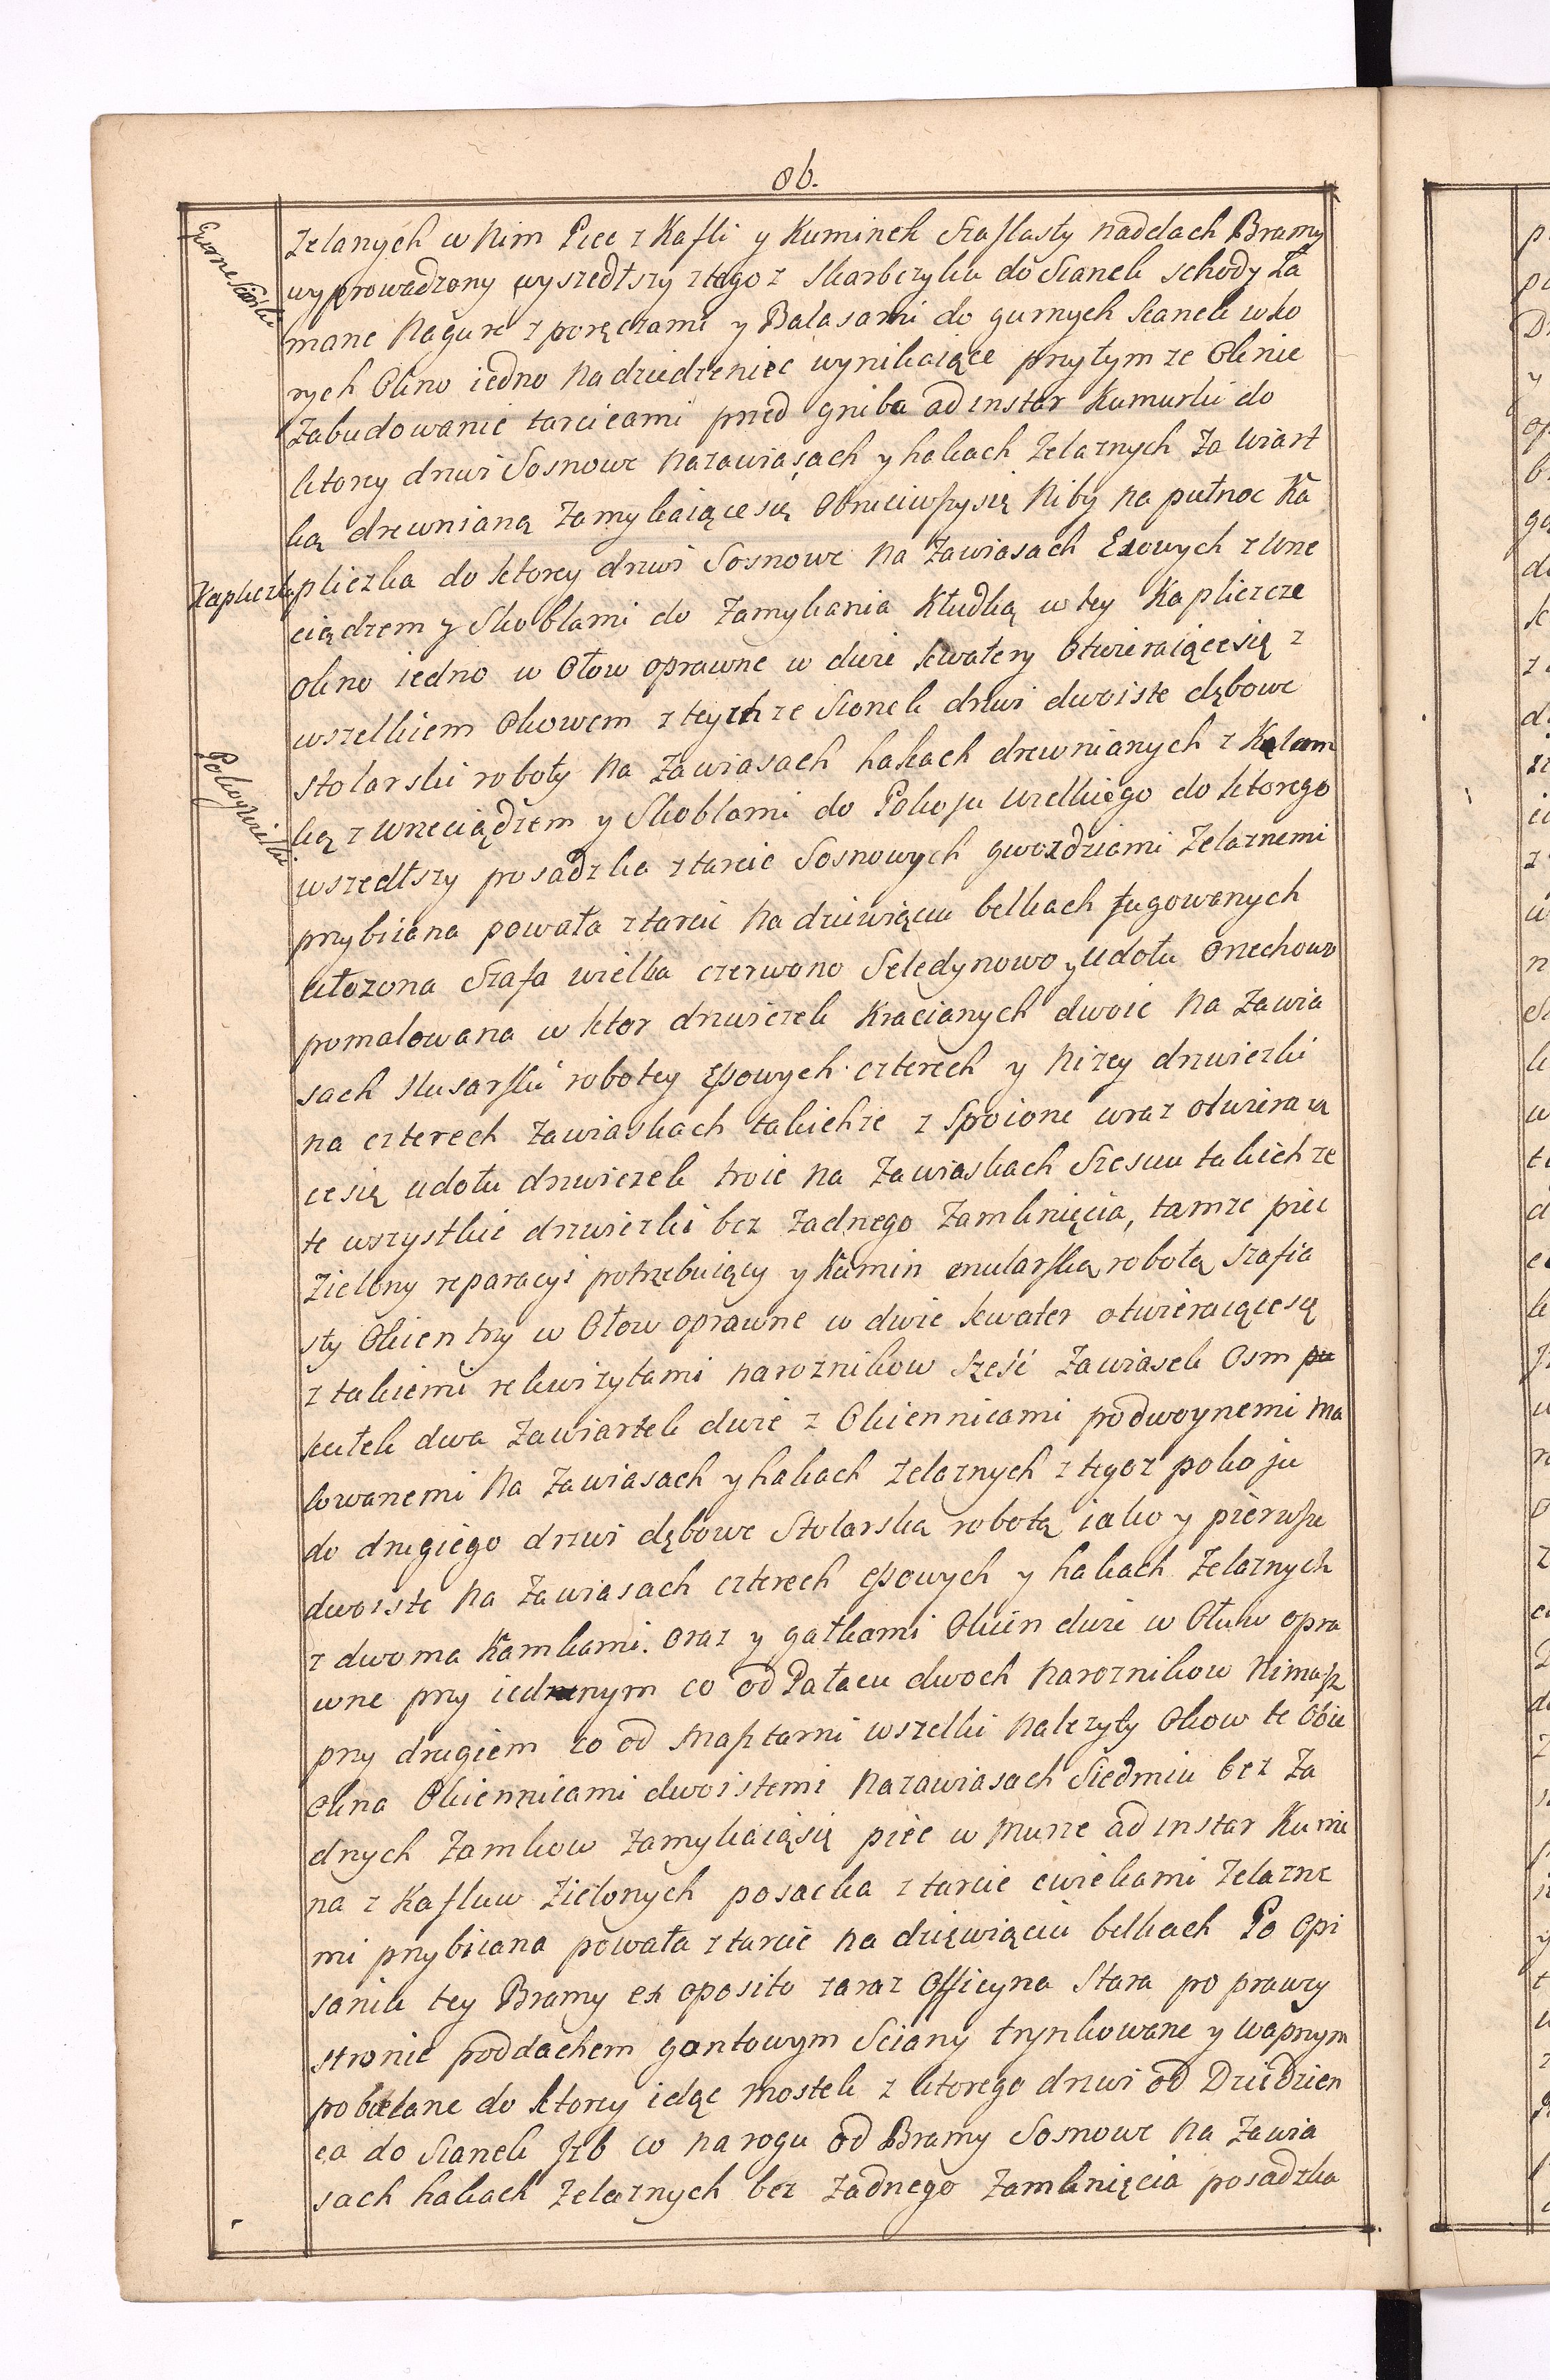 86.
Gurne Sionki
Zelanych w Nim Piec z Kafli y Kuminek Szaflasty naddach Bramy
wyprowadzony wyszedłszy z tego z Skarbczyku do Sianek schody Ła
mane Nagure z poręczami y Balasami do gurnych Sianek w kto
rych Okno iedno Nadziedzeniec wynikaiące przytym ze Oknie
Zabudowanie tarcicami pned gniba ad instar Kumurki do
ktorey drzwi Sosnowe nazawiasach y hakach Zelaznych Zawiart
ką drewnianą Zamykaiące się Obruciwszy się Niby na pułnoc Ka
Kapliczka
pliczka do ktorey drzwi Sosnowe Na Zawiasach Esowych z Wrze
ciądzem y Skoblami do Zamykania Kłudką w tey Kapliczcze
okno iedno w Ołow oprawne w dwie kwatery Otwieraiące się z
wszelkiem Okowem z teyze Sionek drzwi dwoiste dębowe
Pokoy Wielki
stolarski roboty Na Zawiasach hakach drewnianych z Kalam
ką z Wrzeciądzem y Skoblami do Pokoju Wielkiego do ktorego
wszedłszy posadzka z tarcic Sosnowych gwozdziami Zelaznemi
przybiiana powała z tarcic Na dziewięciu belkach fugowanych
ułozona Szafa wielka czerwono Seledynowo y Udołu Orzechowo
pomalowana w ktor drzwiczek Kracianych dwoie Na Zawia
sach slusarski robotey Esowych czterech y Nizey drzwiczki
na czterech Zawiaskach takichze z Spoione wraz otwieraią
ce się udołu drzwiczek troie Na Zawiaskach Szesciu takichze
te wszystkie drzwiczki bez Zadnego Zamknięcia, tamze piec
Zielony reparacyi potrzebuiący y Kumin mularską robotą szafia
sty Okien trzy w Ołow oprawne w dwie kwater otwieraiące się
z takiemi rekwizytami naroznikow Szesć Zawiasek Osm
kutek dwa Zawiartek dwie z Okiennicami podwoynemi Ma
lowanemi Na Zawiasach y hakach zelaznych z tegoz pokoju
do drugiego drzwi dębowe Stolarską robotą iako y pierwsze
dwoiste Na Zawiasach czterech esowych y hakach Zelaznych
z dwoma Kamkami. Oraz y gałkami Okien dwie w Ołuw opra
wne przy iednym co od Pałacu dwoch Naroznikow Nimasz
przy drugiem co od Masztarni wszelki Nalezyty Okow te Obie
Okna Okiennicami dwoistemi Nazawiasach Siedmiu bez Za
dnych Zamkow Zamykaiąsię piec w Murze ad instar Kumi
na z Kafluw Zielonych posacka z tarcic cwiekami Zelazne
mi przybiiana powała z tarcic Na dziewięciu belkach Po Opi
saniu tey Bramy ex oposito zaraz Officyna Stara po prawy
stronie poddachem gontowym Sciany trynkowane y Wapnym
pobielane do ktorey idąc Mostek z ktorego drzwi od Dziedzien
ca do Sianek Jzb co na rogu od Bramy Sosnowe Na Zawia
sach hakach Zelaznych bez Zadnego Zamknięcia posadzka